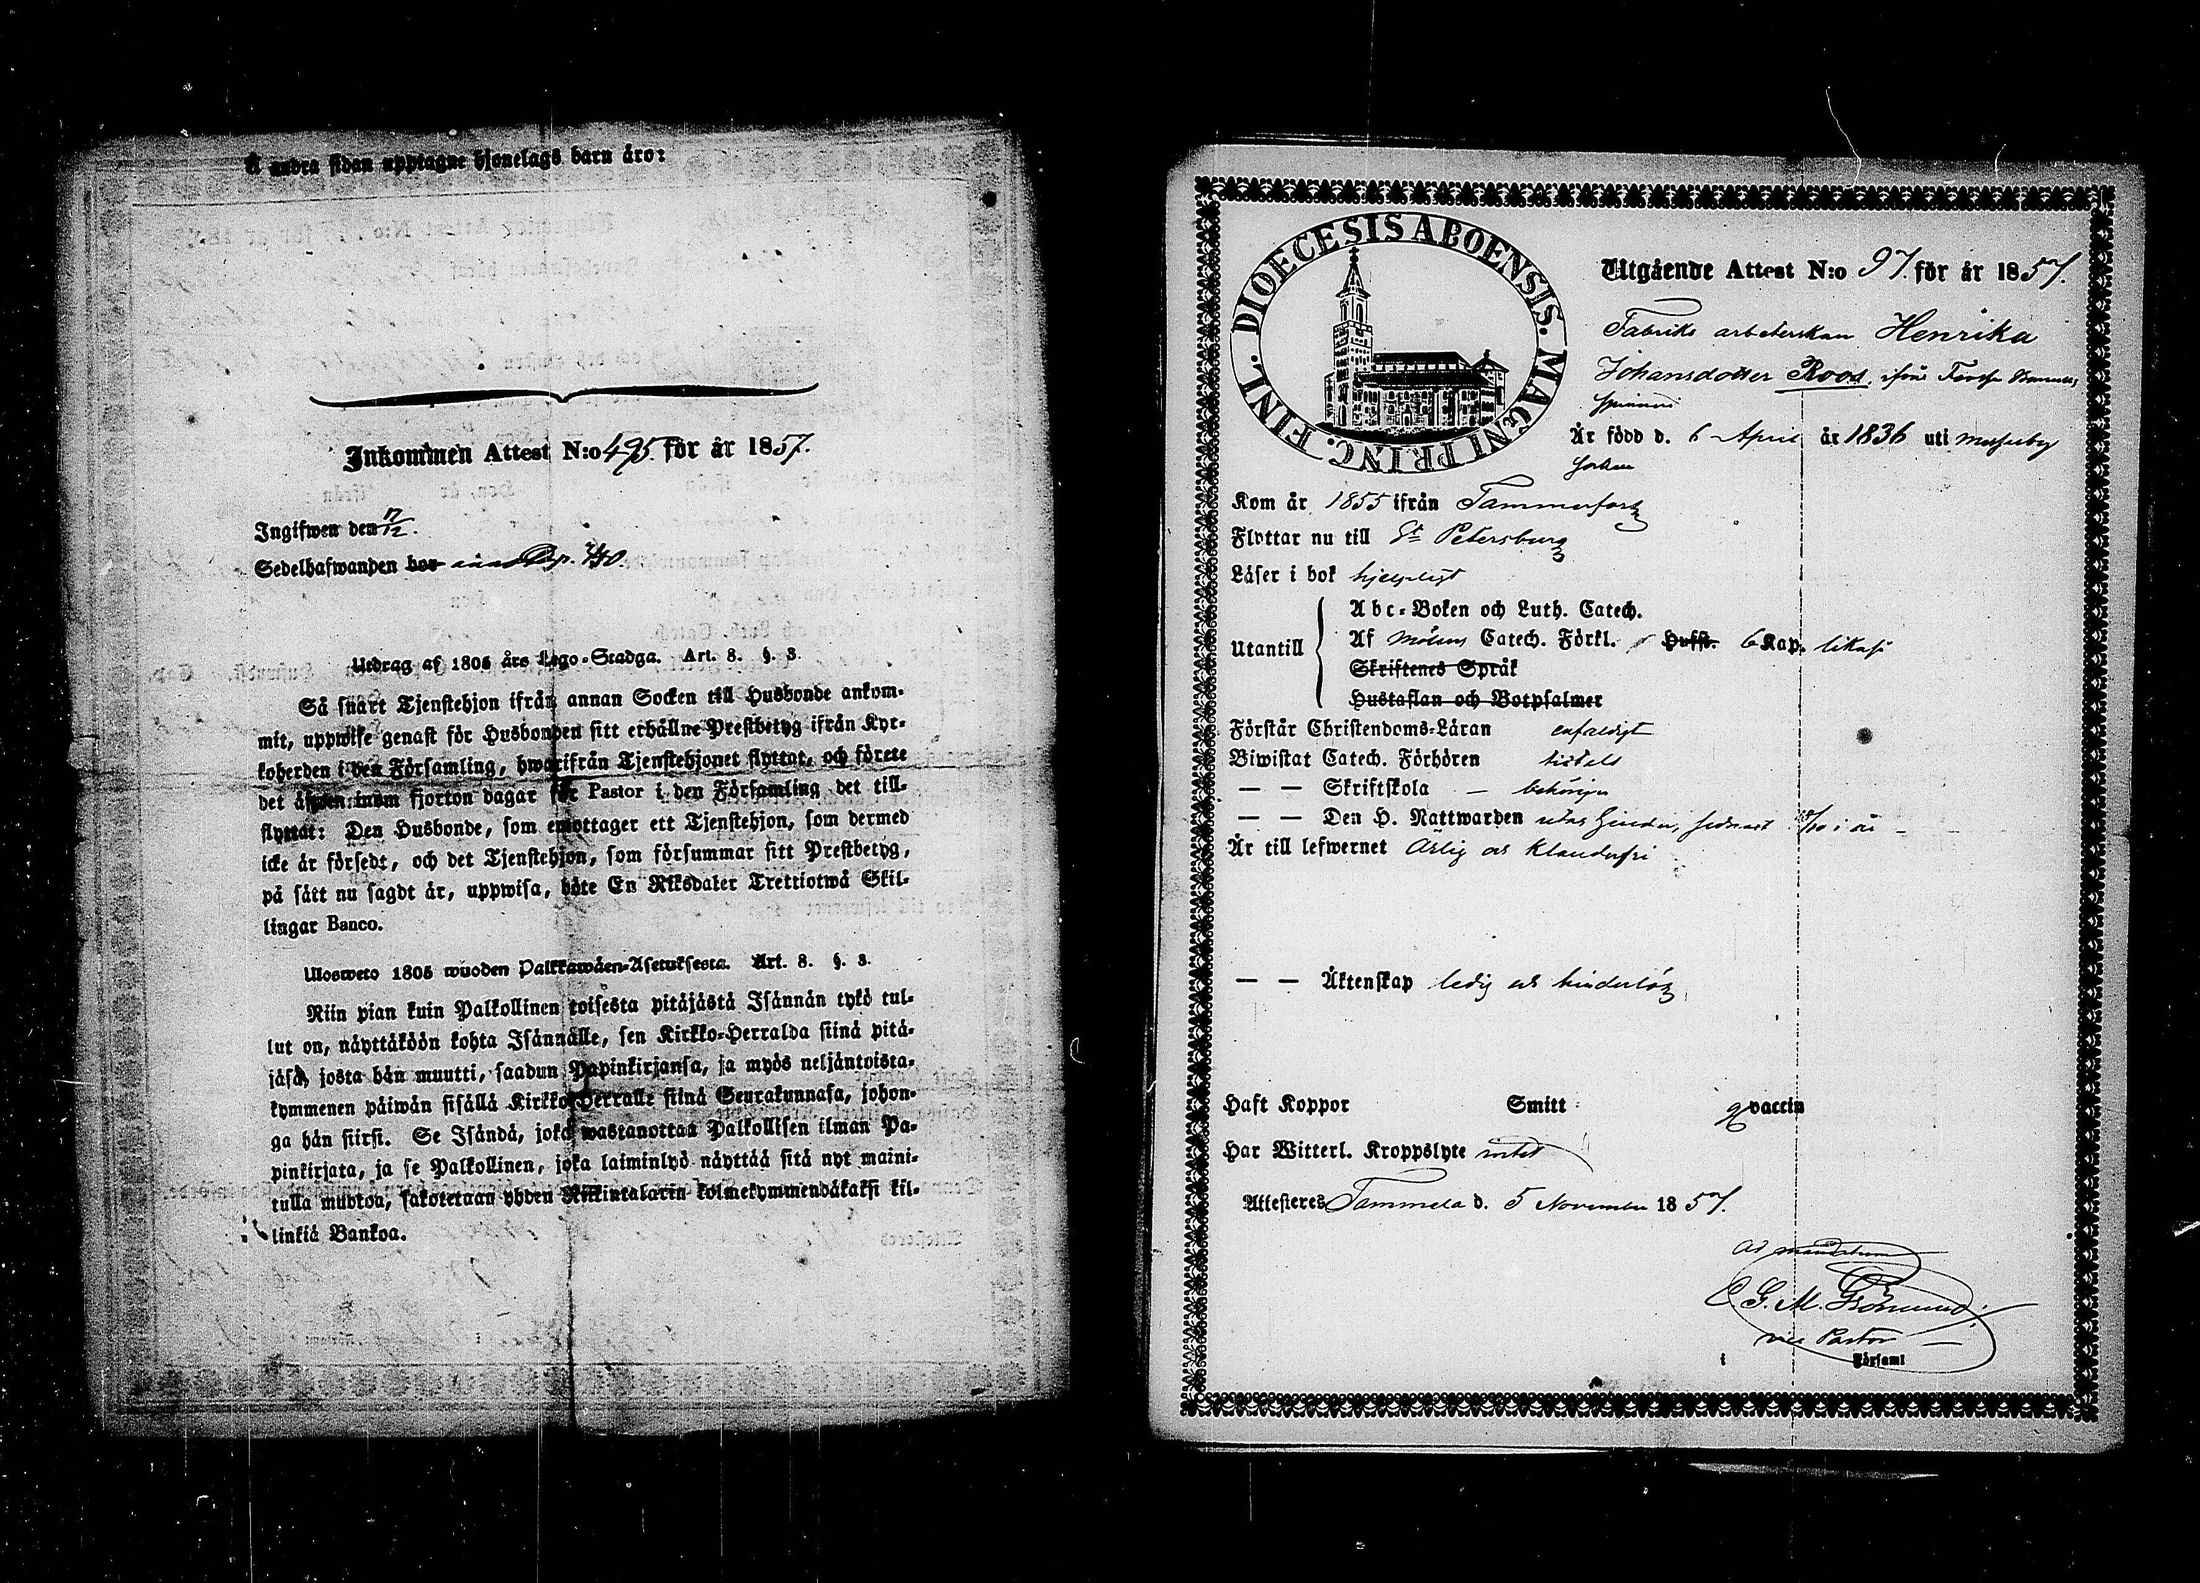 Å andra sidan upptagne hjonelags barn äro:
Inkommen Attest N:o 495. för år 1857.
Ingifwen den 17/12.
Sedelhafwanden bor
Utdrag af 1805 års Lego-Stadga. Art. 8. §. 3.
Så snart Tjenstehjon ifrån annan Socken till Husbonde ankom-
mit, uppwise genast för Husbonden sitt erhållne Prestbetyg ifrån Kyr-
koherden i den Församling, hwarifrån Tjenstehjonet flyttat, och förete
det äfwen inom fjorton dagar för Pastor i den Församling det till-
flyttat: Den Husbonde, som emottager ett Tjenstehjon, som dermed
icke är försedt, och det Tjenstehjon, som försummar sitt Prestbetyg,
på sätt nu sagdt är, uppwisa, böte En Riksdaler Trettiotwå Skil-
lingar Banco.
Ulosweto 1805 wuoden Palkkawäen-Asetuksesta. Art. 8. §. 3.
Niin pian kuin Palkollinen toisesta pitäjästä Isännän tykö tul-
lut on, näyttäköön kohta Isännälle, sen Kirkko-Herralda siinä pitä-
jäsä, josta hän muutti, saadun Papinkirjansa, ja myös neljäntoista-
kymmenen päiwän sisällä Kirkko-Herralle siinä Seurakunnasa, johon-
ga hän siirsi. Se Isändä, joka wastanottaa Palkollisen ilman Pa-
pinkirjata, ja se Palkollinen, joka laiminlyö näyttää sitä nyt maini-
tulla muotoa, sakotetaan yhden Riikintalarin kolmekymmendäkaksi kil-
linkiä Bankoa.
DIOECESIS ABOENSIS. MAGNI PRINC. FINL.
Utgående Attest N:o 97. för år 1857.
Fabriks arbeterskan Henrika
Johansdotter Roos, ifrån
spinneri
Är född d. 6 April år 1836 uti Messuby
Socken
Kom år 1855 ifrån Tammerfors
Flyttar nu till St Petersburg
Läser i bok hjelpligt
Utantill
Abc-Boken och Luth. Catech.
Af Catech. Förkl. Hufst. 6 Kap. likaså
Skriftenes Språk
Hustaflan och Botpsalmer
Förstår Christendoms-Läran enfaldigt
Biwistat Catech. Förhören
— — Skriftskola — behörigen
— — Den H. Nattwarden utan hinder, sednast /10 i år — —
Är till lefwernet Ärlig och Klanderfri
— — Äktenskap ledig och hinderlös
Haft Koppor Smitt vaccin
Har Witterl. Kroppslyte intet
Attesteres Tammela d. 5 November 1857.
Ad mandatum
C. G. M.
vice Pastor
i Församl